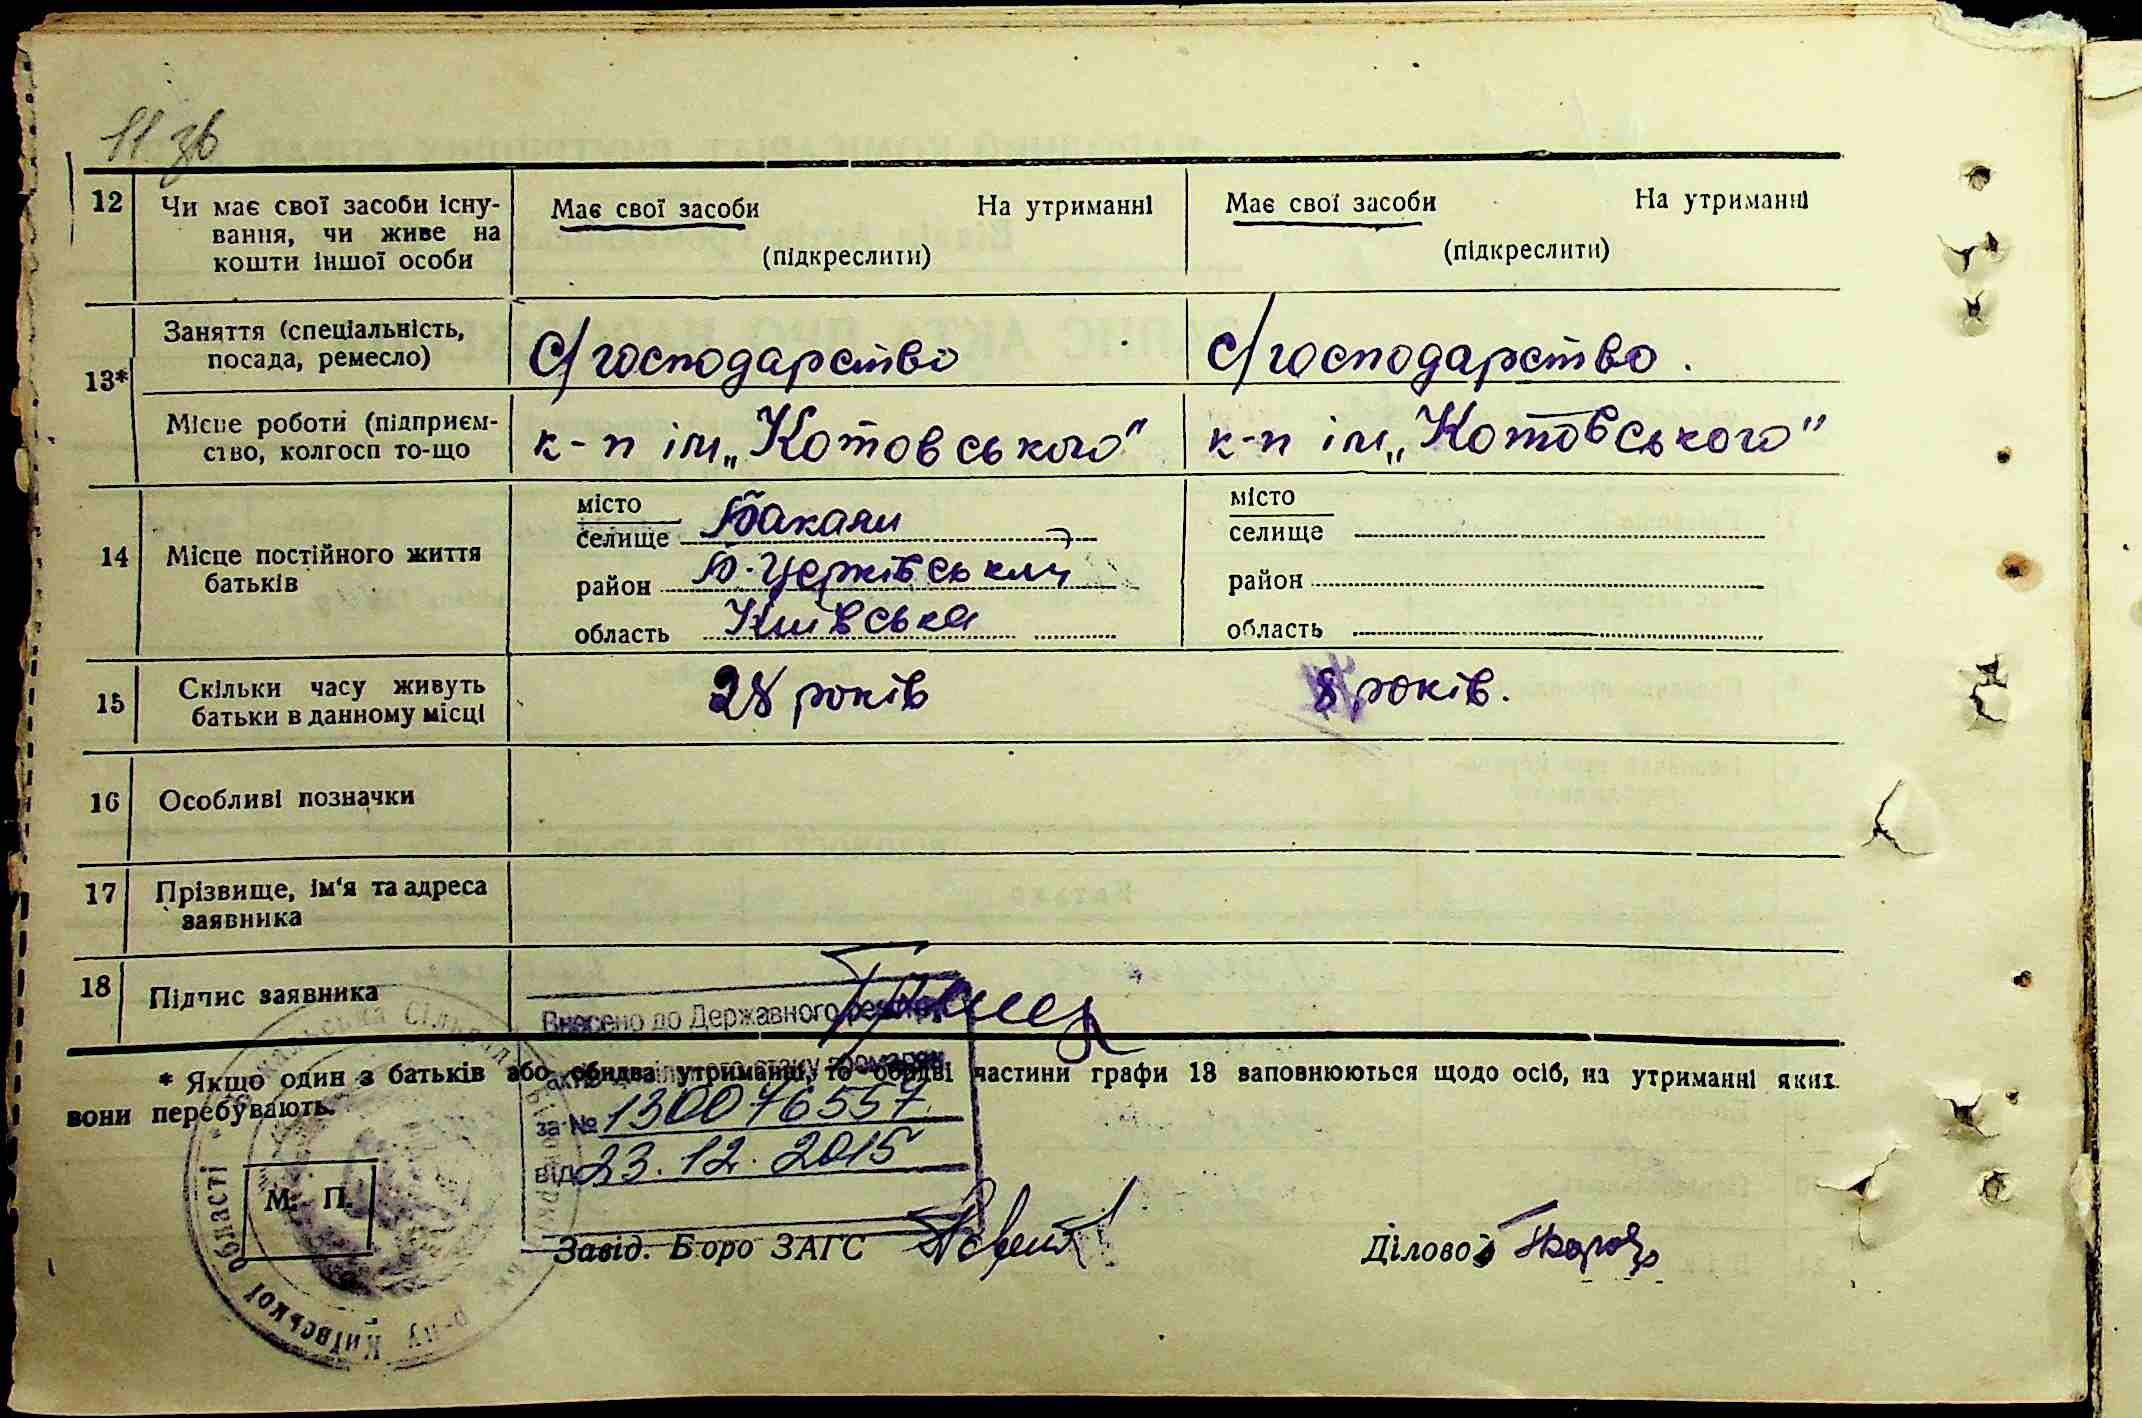 11 зв
12 Чи має свої засоби існу-
вання, чи живе на
кошти іншої особи
Має свої засоби На утриманні
(підкреслити)
Має свої засоби На утриманні
(підкреслити)
13* Заняття (спеціальність,
посада, ремесло)
с/господарство
с/господарство.
Місце роботи (підприєм-
ство, колгосп то-що
к-п ім „Котовського"
к-п ім „Котовського"
14 Місце постійного життя
батьків
місто
селище Бакали
район Б-Церківський
область Київська
місто
селище
район
область
15 Скільки часу живуть
батьки в данному місці
28 років
8 років.
16 Особливі позначки
17 Прізвище, ім'я та адреса
заявника
18 Підпис заявника
Внесено до Державного реєстру
актів цивільного стану громадян
за № 13007655 7
від 23.12.2015
* Якщо один з батьків або обидва утриманці, то обидві частини графи 13 заповнюються щодо осіб, на утриманні яких
вони перебувають.
М. П.
Київської області
Завід. Бюро ЗАГС
Діловод